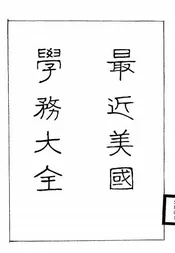 最近美國
學務大全